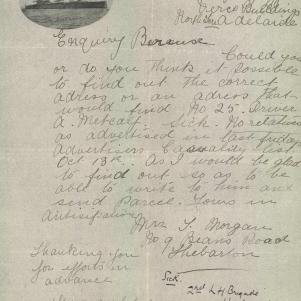 Pierce Buildings
North Adelaide
Enquiry Bureause
Could you
or do you think it possible
to find out the correct
adress or an adress that
would find No 25. Driver
A. Metcalf. Sick. No relatives
as advertised in last fridays
Advertisers Casuality list
Oct 13th. As I would be glad
to find out so as to be
able to write to him and
send Parcel. Yours in
Antisipation
Mrs T. Morgan
No 9 Beans Road
Thebarton
Thanking you
for efforts in
advance
Sick
2nd L H Brigade